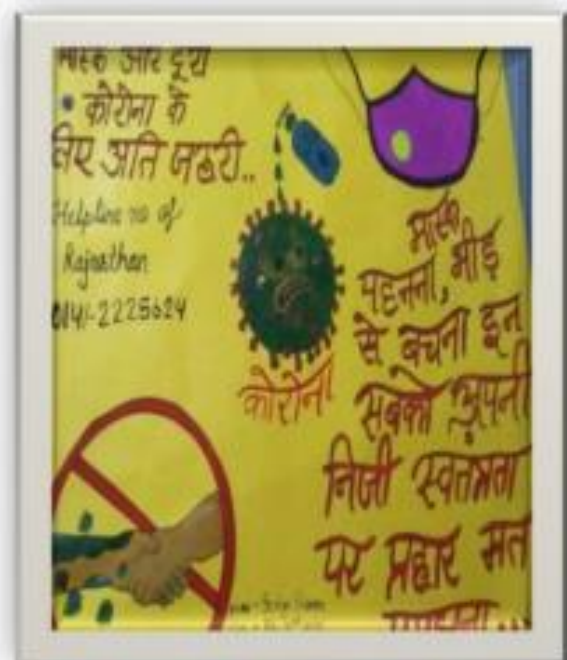 मास्क और दूरी
• कोरोना के
लिए अति जरुरी..
Helpline no of
Rajasthan
0141-2225624
कोरोना
मास्क
पहनना, भीड़
से बचना इन
सबको अपनी
निजी स्वतंत्रता
पर प्रहार मत
समझना...